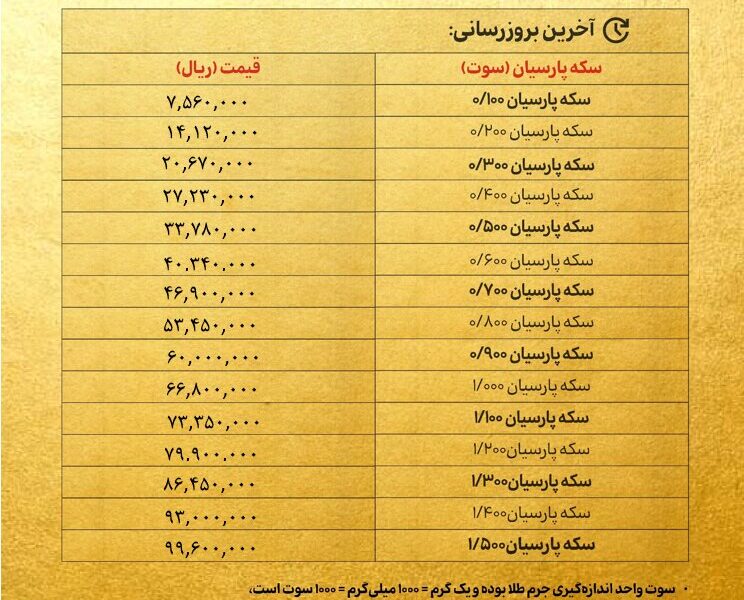 آخرین بروزرسانی:
سکه پارسیان (سوت) قیمت (ریال)
سکه پارسیان ۰/۱۰۰ ۷,۵۶۰,۰۰۰
سکه پارسیان ۰/۲۰۰ ۱۴,۱۲۰,۰۰۰
سکه پارسیان ۰/۳۰۰ ۲۰,۶۷۰,۰۰۰
سکه پارسیان ۰/۴۰۰ ۲۷,۲۳۰,۰۰۰
سکه پارسیان ۰/۵۰۰ ۳۳,۷۸۰,۰۰۰
سکه پارسیان ۰/۶۰۰ ۴۰,۳۴۰,۰۰۰
سکه پارسیان ۰/۷۰۰ ۴۶,۹۰۰,۰۰۰
سکه پارسیان ۰/۸۰۰ ۵۳,۴۵۰,۰۰۰
سکه پارسیان ۰/۹۰۰ ۶۰,۰۰۰,۰۰۰
سکه پارسیان ۱/۰۰۰ ۶۶,۸۰۰,۰۰۰
سکه پارسیان ۱/۱۰۰ ۷۳,۳۵۰,۰۰۰
سکه پارسیان۱/۲۰۰ ۷۹,۹۰۰,۰۰۰
سکه پارسیان۱/۳۰۰ ۸۶,۴۵۰,۰۰۰
سکه پارسیان۱/۴۰۰ ۹۳,۰۰۰,۰۰۰
سکه پارسیان۱/۵۰۰ ۹۹,۶۰۰,۰۰۰
· سوت واحد اندازه‌گیری جرم طلا بوده و یک گرم = ۱۰۰۰ میلی‌گرم = ۱۰۰۰ سوت است،